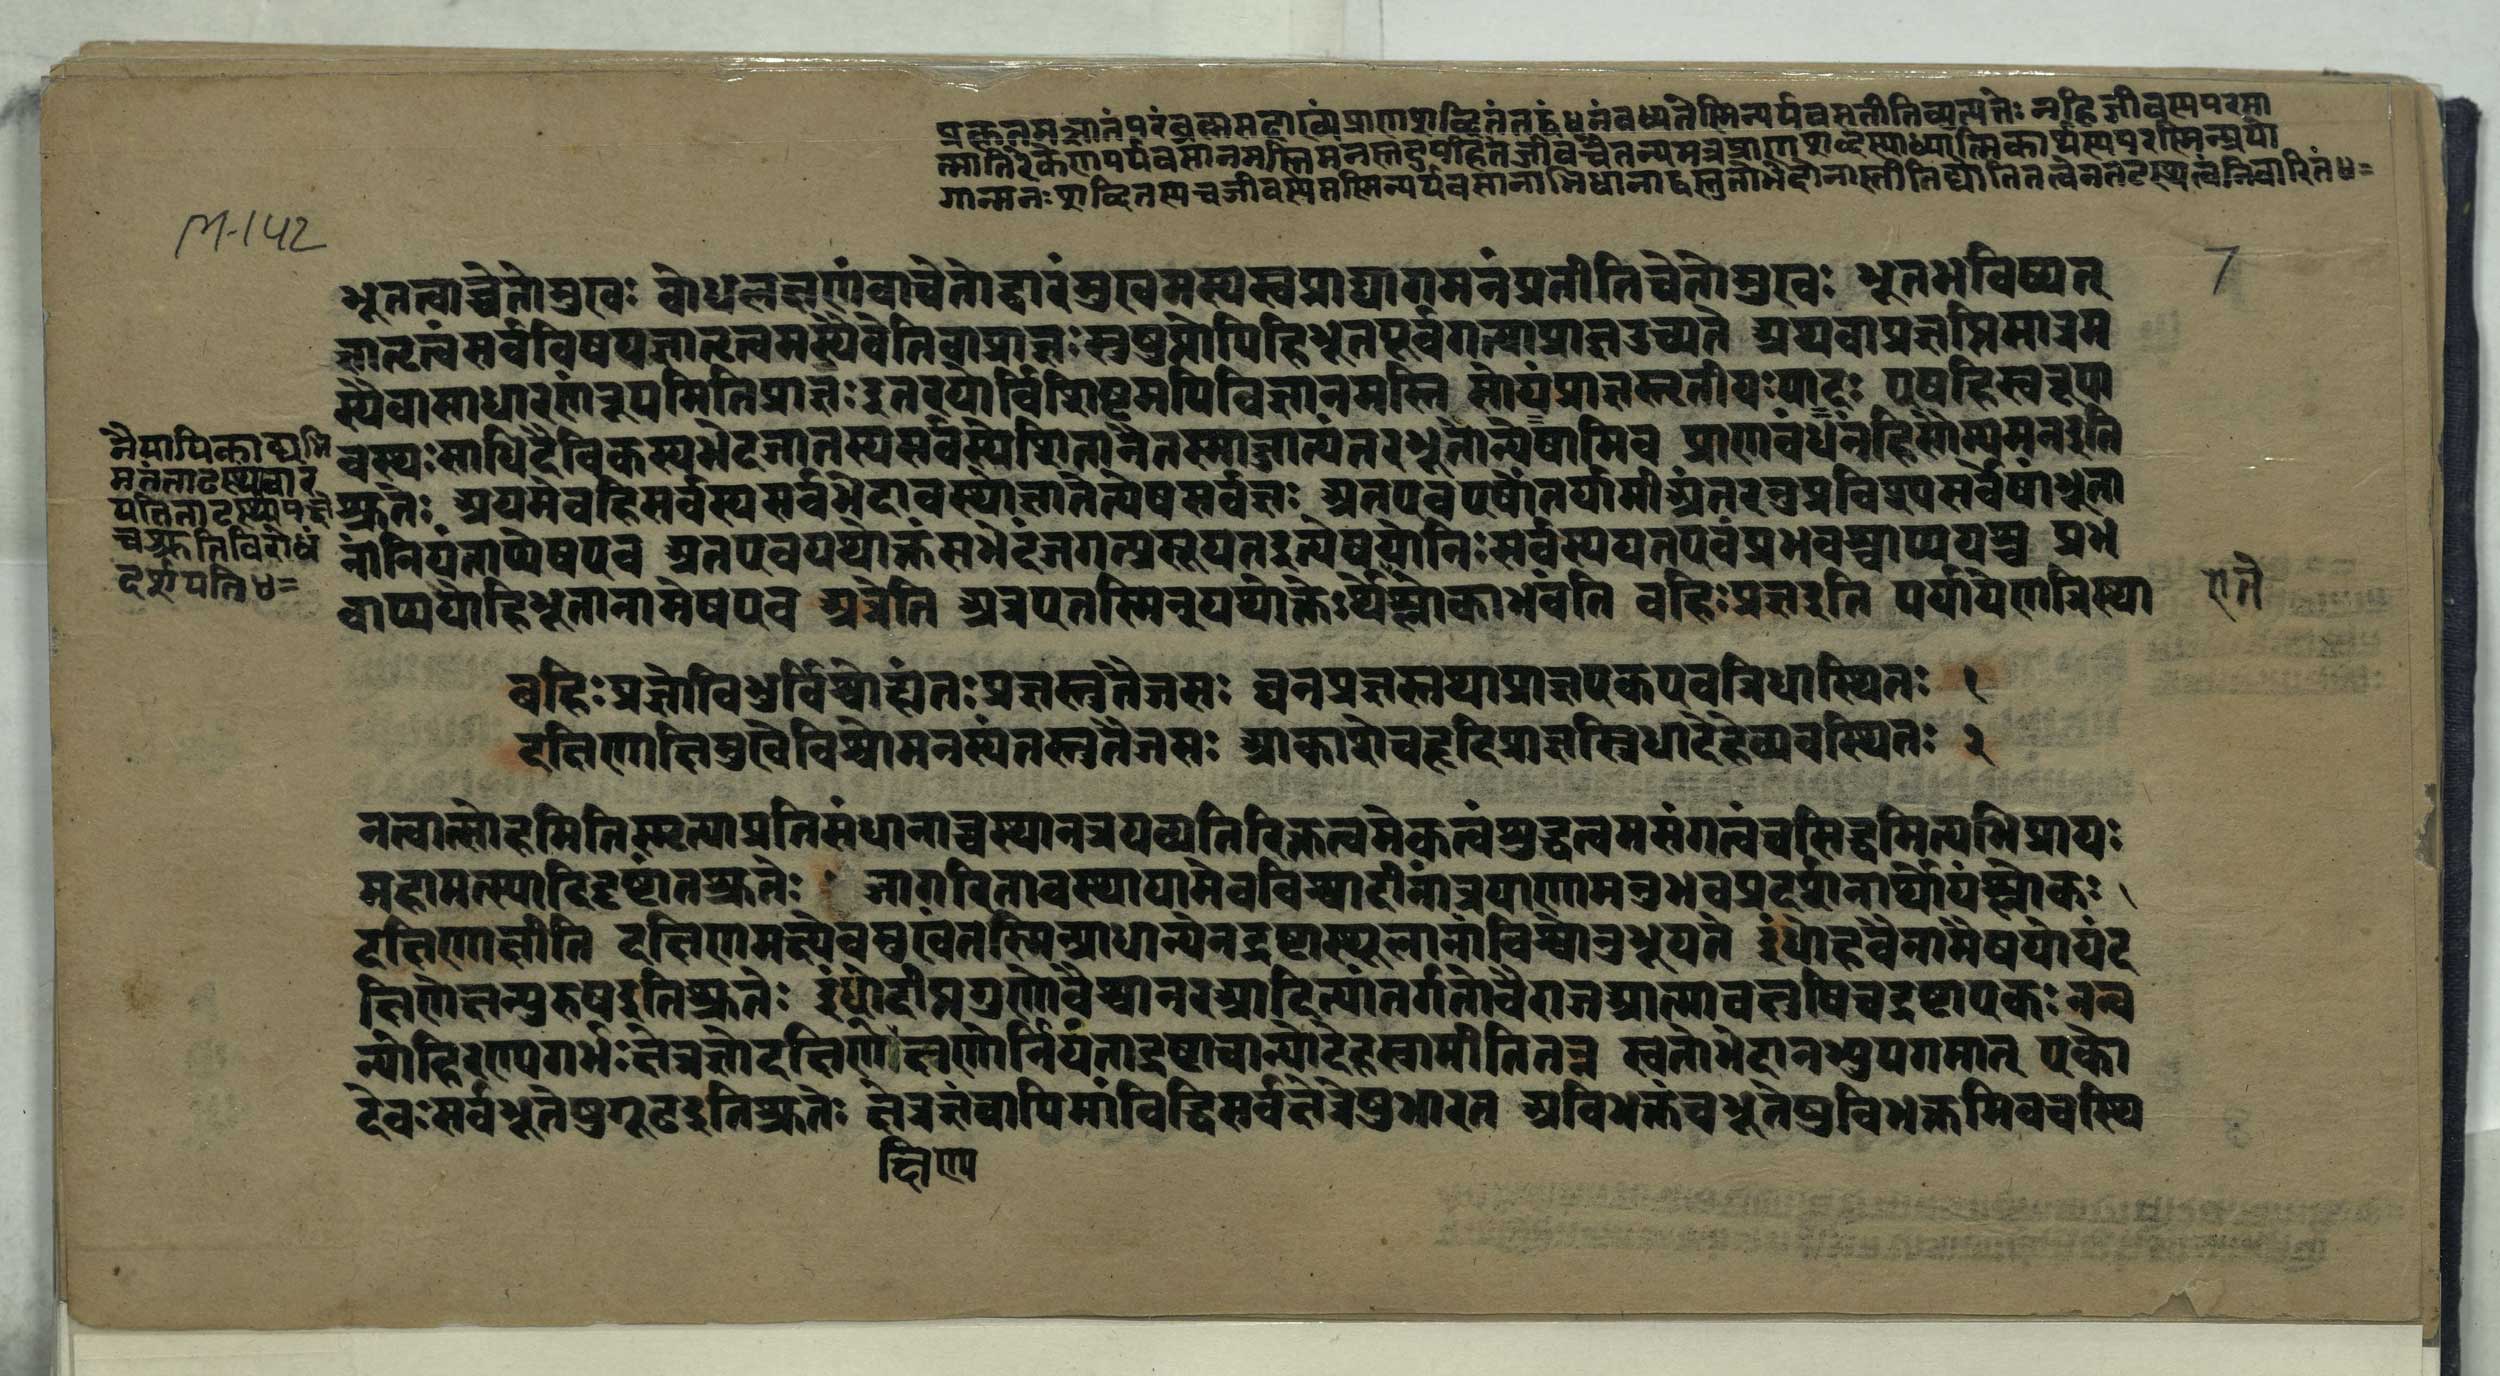 प्रकृतमज्ञातं परं ब्रह्म सदाख्यं प्राणशब्दितं तद्बंधनं बध्यतेस्मिन्पर्यवस्यतीति व्युत्पत्तेः नहि जीवस्य परमा
त्मातिरेकेण पर्यवसानमस्ति मनस्तदुपहितं जीवचैतन्यमत्र प्राणशब्दस्याध्यात्मिकार्थस्य परस्मिन्प्रयो
गान्मनःशब्दितस्य च जीवस्य तस्मिन्पर्यवसानाभिधानाद्वस्तुतो भेदो नास्तीति द्योतितत्वेन तटस्थत्वं निवारितं ४=
M-142
7
भूतत्वाच्चेतोमुखः बोधलक्षणं वा चेतो द्वारं मुखमस्य स्वप्नाद्यागमनं प्रतीति चेतोमुखः भूतभविष्यत्
ज्ञातृत्वं सर्वविषयज्ञातृत्वमस्यैवेति वा प्राज्ञः सुषुप्तोपि हि भूतपूर्वगत्या प्राज्ञ उच्यते अथवा प्रज्ञप्तिमात्रम
स्यैवासाधारणं रूपमिति प्राज्ञः इतरयोर्विशिष्टमपि विज्ञानमस्ति सोयं प्राज्ञस्तृतीयः पादः एष हि स्वरूपा
वस्थः साधिदैविकस्य भेदजातस्य सर्वस्येशिता नैतस्माज्जात्यंतरभूतोन्येषामिव प्राणबंधनं हि सोम्य मन इति
श्रुतेः अयमेव हि सर्वस्य सर्वभेदावस्थो ज्ञातेत्येष सर्वज्ञः अत एव एषोंतर्यामी अंतरनुप्रविश्य सर्वेषां भूता
नां नियंताप्येष एव अत एव यथोक्तं सभेदं जगत्प्रसूयत इत्येष योनिः सर्वस्य यत एवं प्रभवश्चाप्ययश्च प्रभ
वाप्ययौ हि भूतानामेष एव अत्रेति अत्र एतस्मिन् यथोक्तेर्थे श्लोका भवंति बहिःप्रज्ञ इति पर्यायेण त्रिस्था
णैते
नैयायिकाद्यभि
मतं ताटस्थ्यं वार
यति ताटस्थ्योपगमे
च श्रुतिविरोधं
दर्शयति ४=
बहिःप्रज्ञो विभुर्विश्वो ह्यंतःप्रज्ञस्तु तैजसः घनप्रज्ञस्तथा प्राज्ञ एक एव त्रिधा स्थितः १
दक्षिणाक्षिमुखे विश्वो मनस्यंतस्तु तैजसः आकाशे च हृदि प्राज्ञस्त्रिधा देहे व्यवस्थितः २
नत्वात्सोहमिति स्मृत्या प्रतिसंधानाच्च स्थानत्रयव्यतिरिक्तत्वमेकत्वं शुद्धत्वमसंगत्वं च सिद्धमित्यभिप्रायः
महामत्स्यादिदृष्टांतश्रुतेः १ जागरितावस्थायामेव विश्वादीनां त्रयाणामनुभवप्रदर्शनार्थोयं श्लोकः
दक्षिणाक्षीति दक्षिणमक्ष्येव मुखं तस्मिन्प्राधान्येन द्रष्टा स्थूलानां विश्वोनुभूयते इंधो ह वै नामैष योयं द
क्षिणेक्षन्पुरुष इति श्रुतेः इंधो दीप्तगुणो वैश्वानर आदित्यांतर्गतो वैराज आत्मा चक्षुषि च द्रष्टा एकः नन्व
न्यो हिरण्यगर्भः क्षेत्रज्ञो दक्षिणे क्षणोर्नियंता द्रष्टा चान्यो देहस्वामीति तन्न स्वतो भेदानभ्युपगमात् एको
देवः सर्वभूतेषु गूढ इति श्रुतेः क्षेत्रज्ञं चापि मां विद्धि सर्वक्षेत्रेषु भारत अविभक्तं च भूतेषु विभक्तमिव च स्थि
क्षिण्य